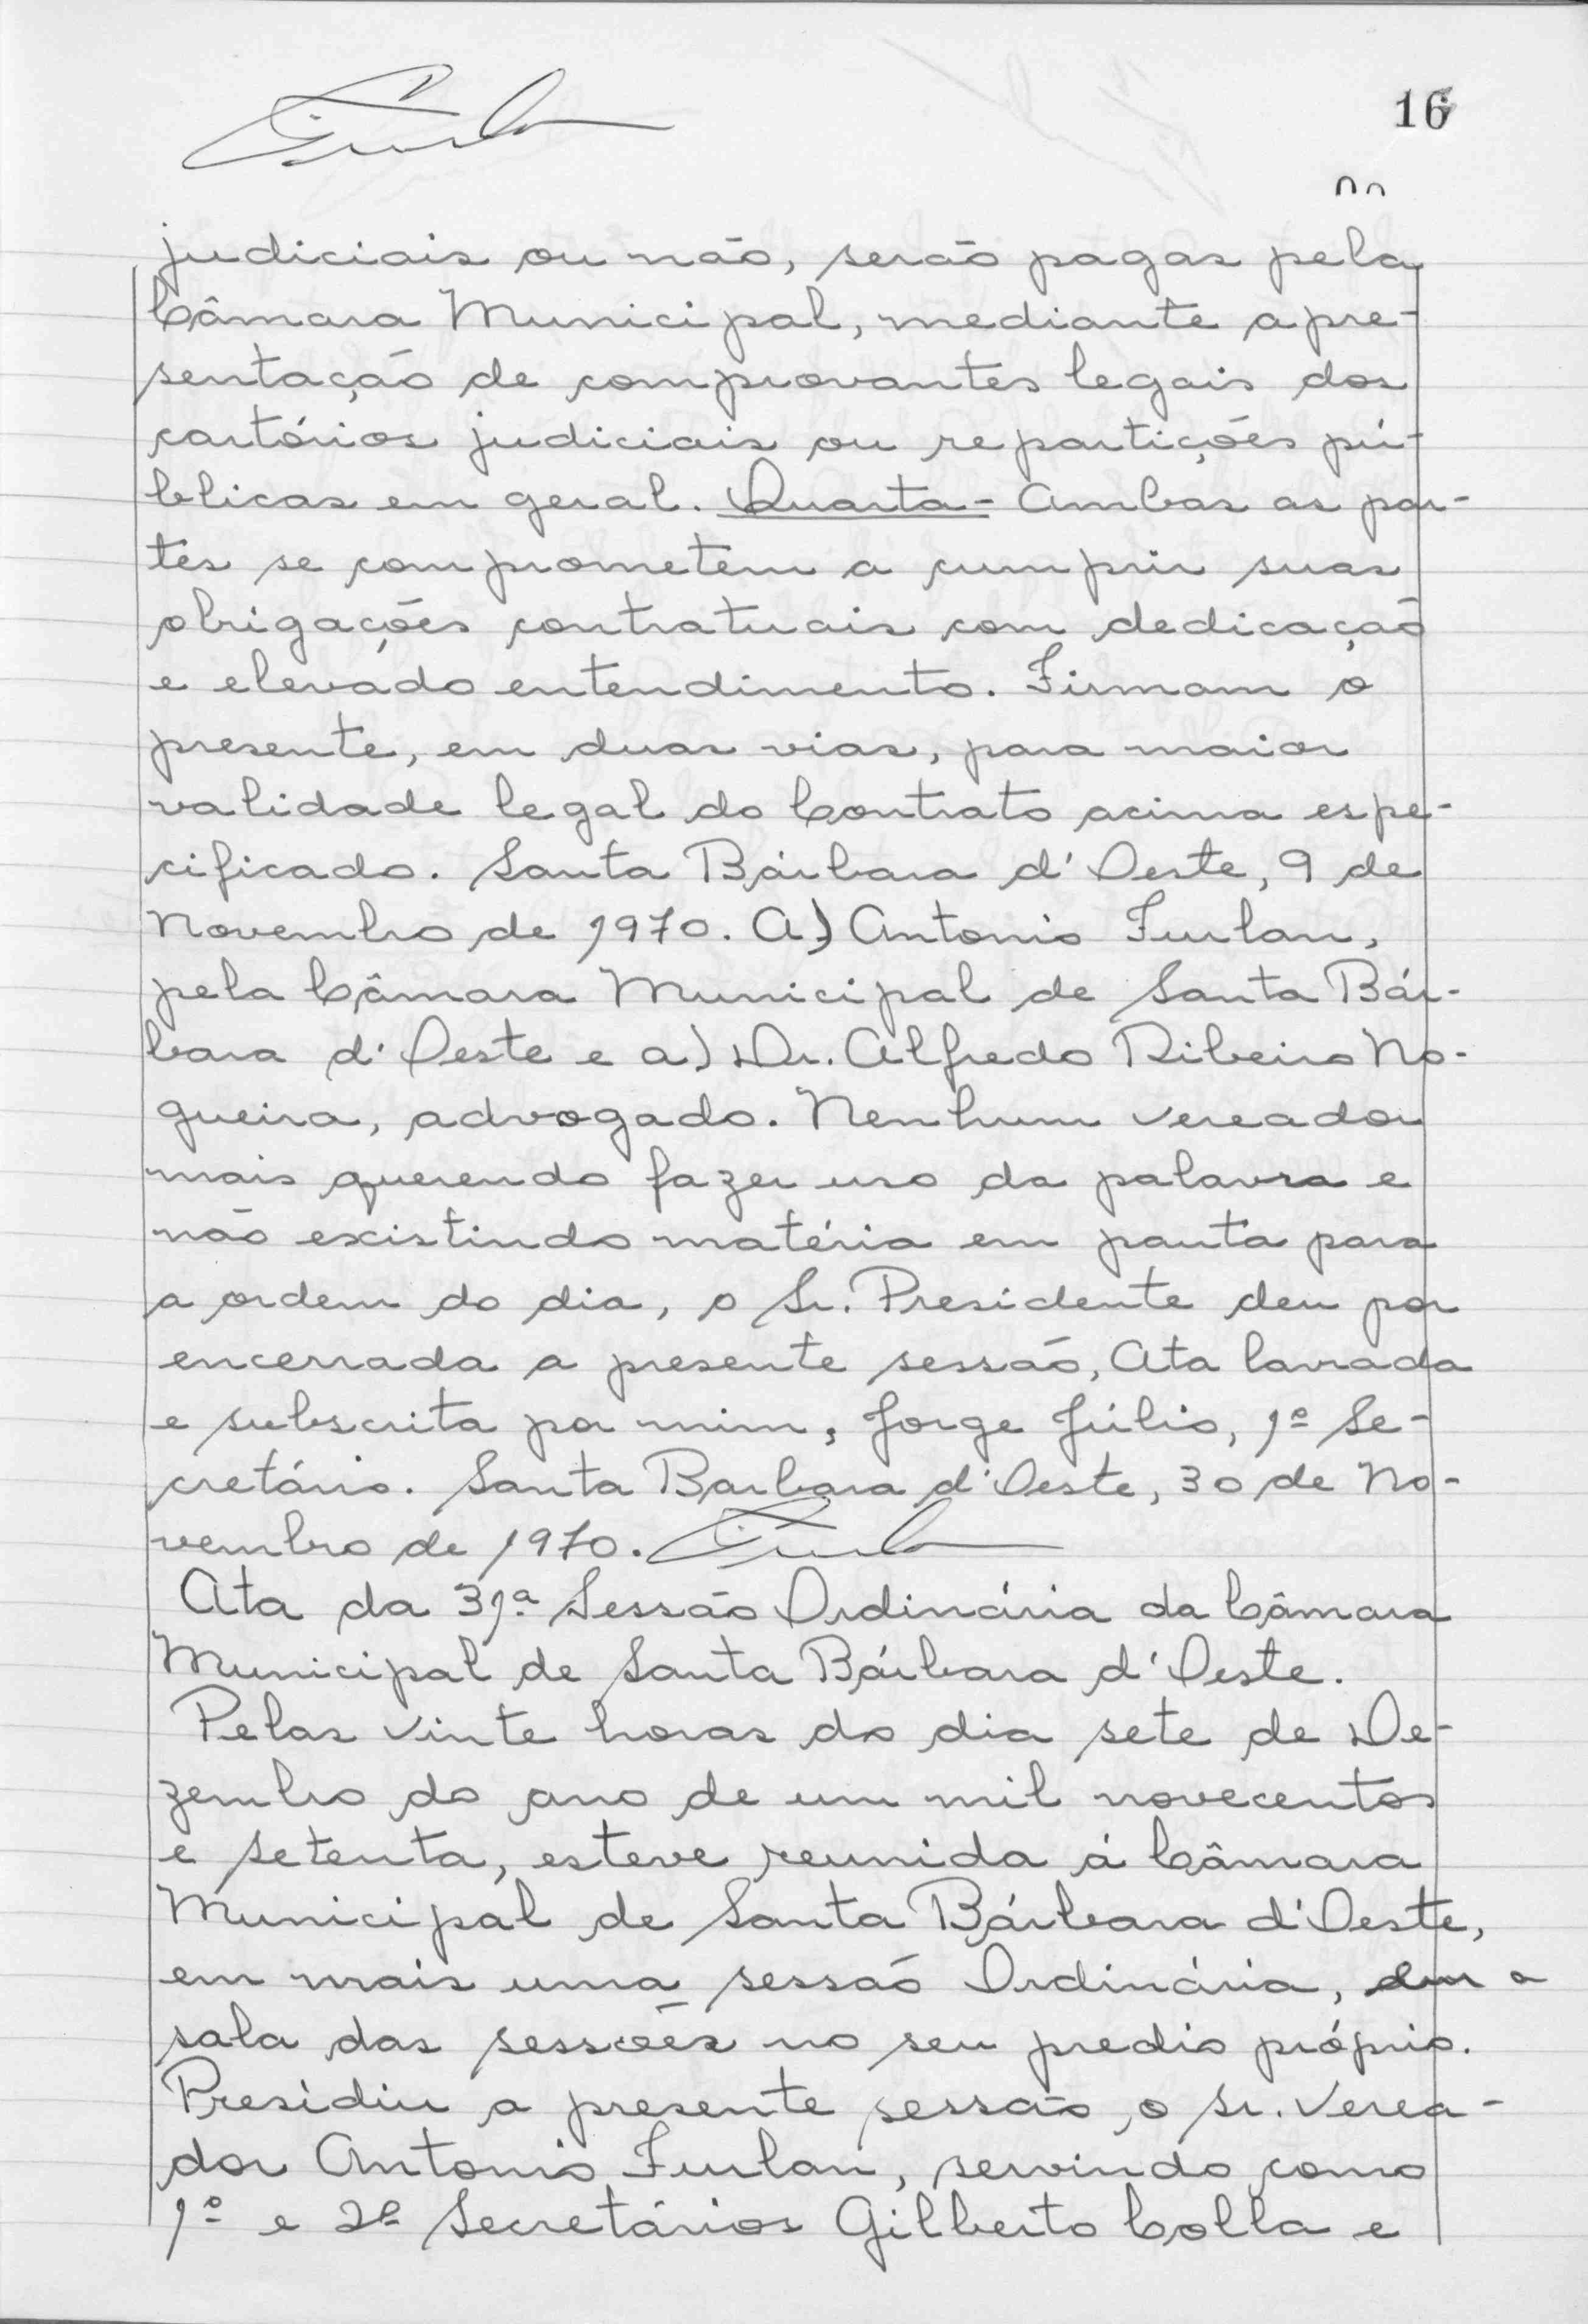 16
judiciais ou não, serão pagas pela
Câmara Municipal, mediante apre-
sentação de comprovantes legais dos
cartórios judiciais ou repartições pú-
blicas em geral. Quarta - Ambas as par-
tes se comprometem a cumprir suas
obrigações contratuais com dedicação
e elevado entendimento. Firmam o
presente, em duas vias, para maior
validade legal do Contrato acima espe-
cificado. Santa Bárbara d'Oeste, 9 de
Novembro de 1970. a) Antonio Furlan,
pela Câmara Municipal de Santa Bár-
bara d'Oeste e a) Dr. Alfredo Ribeiro No-
gueira, advogado. Nenhum vereador
mais querendo fazer uso da palavra e
não existindo matéria em pauta para
a ordem do dia, o Sr. Presidente deu por
encerrada a presente sessão, Ata lavrada
e subscrita por mim, Jorge Júlio, 1º Se-
cretário. Santa Barbara d'Oeste, 30 de No-
vembro de 1970.
Ata da 31ª Sessão Ordinária da Câmara
Municipal de Santa Bárbara d'Oeste.
Pelas vinte horas do dia sete de De-
zembro do ano de um mil novecentos
e setenta, esteve reunida á Câmara
Municipal de Santa Bárbara d'Oeste,
em mais uma sessão Ordinária, a
sala das sessões no seu predio próprio.
Presidiu a presente sessão, o Sr. Verea-
dor Antonio Furlan, servindo como
1º e 2º Secretários Gilberto Colla e